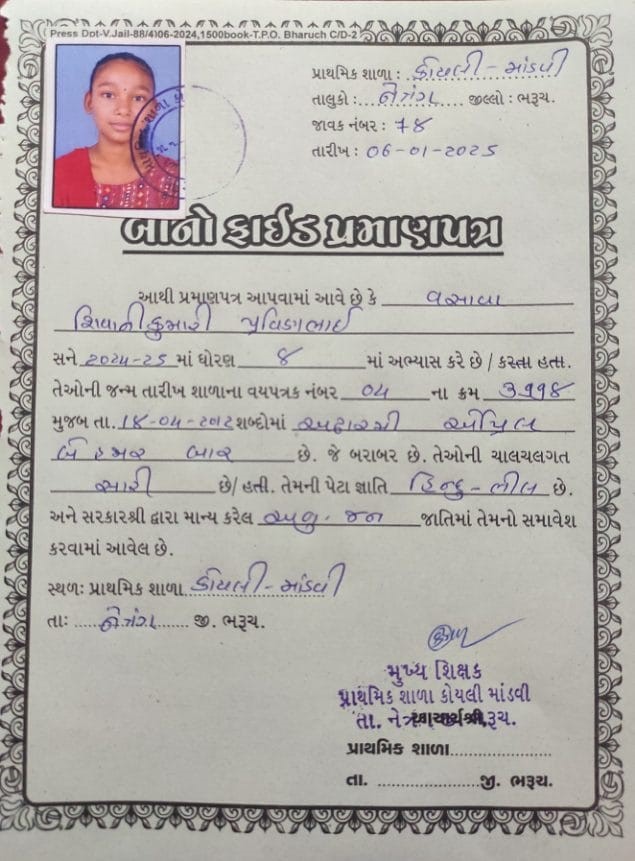 Press Dot-V.Jail-88/4)06-2024,1500book-T.P.O. Bharuch C/D-2
પ્રાથમિક શાળા : કોયલી - માંડવી
તાલુકો : નેત્રંગ જીલ્લો : ભરૂચ.
જાવક નંબર : ૭૪
તારીખ : ૦૬-૦૧-૨૦૨૫
બોનો ફાઈડ પ્રમાણપત્ર
આથી પ્રમાણપત્ર આપવામાં આવે છે કે વસાવા
શિવાનીકુમારી પ્રવિણભાઈ
સને ૨૦૨૪-૨૫ માં ધોરણ ૭ માં અભ્યાસ કરે છે / કરતા હતા.
તેઓની જન્મ તારીખ શાળાના વયપત્રક નંબર ૦૪ ના ક્રમ ૩૧૧૪
મુજબ તા. ૧૮-૦૪-૨૦૧૨ શબ્દોમાં અઢારમી એપ્રિલ
બે હજાર બાર છે. જે બરાબર છે. તેઓની ચાલચલગત
સારી છે/ હતી. તેમની પેટા જ્ઞાતિ હિન્દુ - ભીલ છે.
અને સરકારશ્રી દ્વારા માન્ય કરેલ અનુ. જન જાતિમાં તેમનો સમાવેશ
કરવામાં આવેલ છે.
સ્થળ: પ્રાથમિક શાળા કોયલી - માંડવી
તા: નેત્રંગ જી. ભરૂચ.
મુખ્ય શિક્ષક
પ્રાથમિક શાળા કોયલી માંડવી
આચાર્યશ્રી,
પ્રાથમિક શાળા
તા. જી. ભરૂચ.